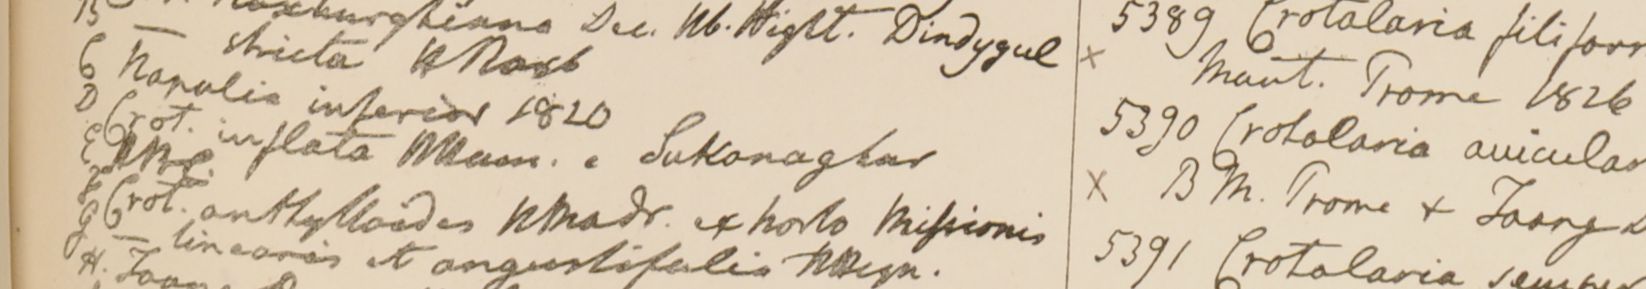 B Roxburghiana Dec. Hb. Wight. Dindygul
— stricta HRoxb
C Napalia inferior 1820
D Crot. inflata Ham. e Sukanaghur
E
F Crot. anthylloides HMadr. ex horto Missionis
G — linearis et angustifolia
H. Taong
5389 Crotalaria filiform
x Mont. Trome 1826
5390 Crotalaria avicular
x B M. Trome + Taong D
5391 Crotalaria semper